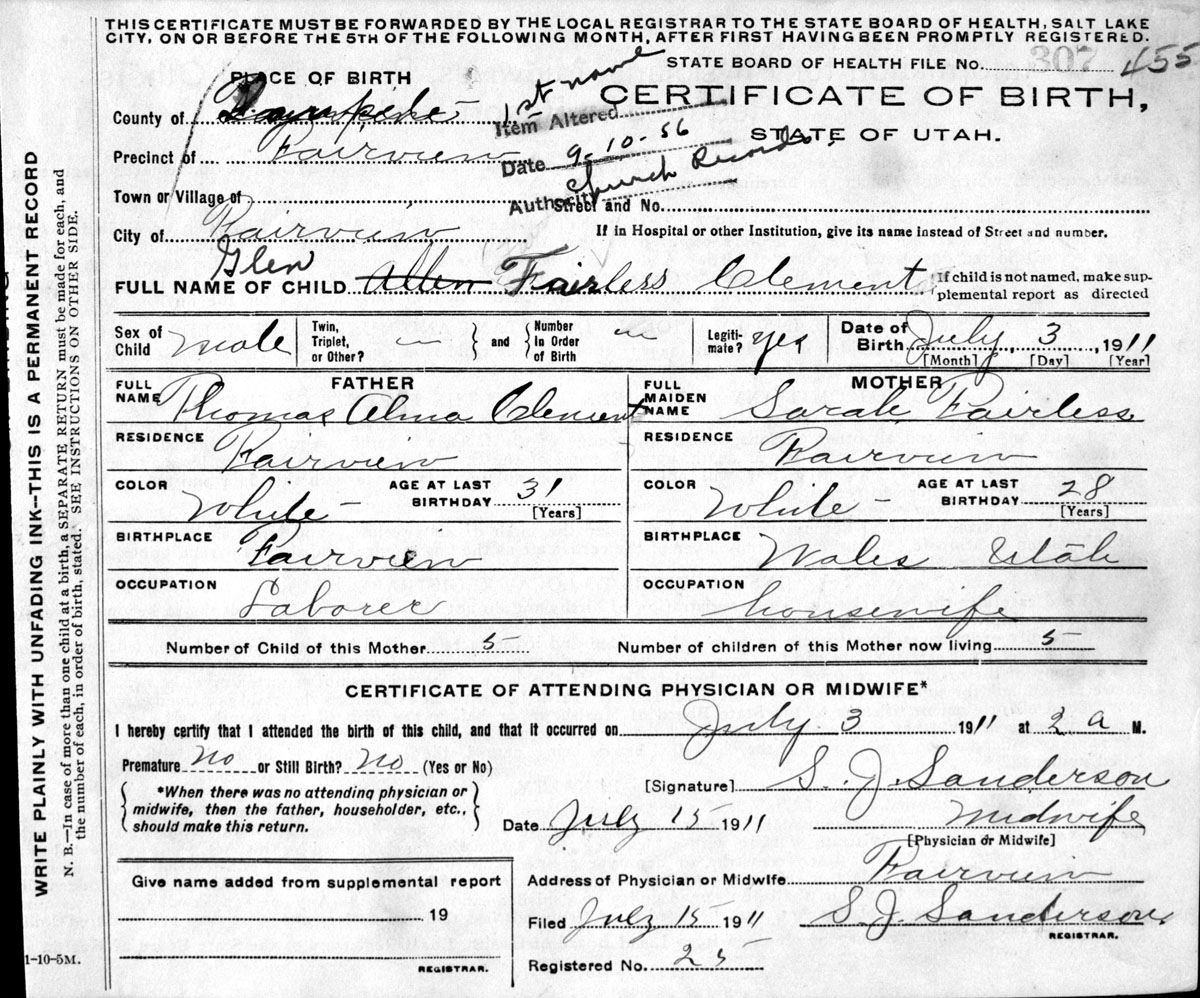 THIS CERTIFICATE MUST BE FORWARDED BY THE LOCAL REGISTRAR TO THE STATE BOARD OF HEALTH, SALT LAKE
CITY, ON OR BEFORE THE 5TH OF THE FOLLOWING MONTH, AFTER FIRST HAVING BEEN PROMPTLY REGISTERED.
STATE BOARD OF HEALTH FILE No. 307 455
PLACE OF BIRTH
CERTIFICATE OF BIRTH,
STATE OF UTAH.
County of
1st name
Item Altered
Precinct of Fairview
Date 9-10-56
Church Records
Authority
Town or Village of
Street and No.
City of Fairview
If in Hospital or other Institution, give its name instead of Street and number.
Glen
FULL NAME OF CHILD Allen Fairless Clement
If child is not named, make sup-
plemental report as directed
Sex of Child male
Twin, Triplet, or Other? —
and
Number In Order of Birth —
Legiti-mate? yes
Date of Birth July 3, 1911
[Month] [Day] [Year]
FATHER
FULL NAME Thomas Alma Clement
RESIDENCE Fairview
COLOR White
AGE AT LAST BIRTHDAY 31
[Years]
BIRTHPLACE Fairview
OCCUPATION Laborer
MOTHER
FULL MAIDEN NAME Sarah Fairless
RESIDENCE Fairview
COLOR White
AGE AT LAST BIRTHDAY 28
[Years]
BIRTHPLACE Wales Utah
OCCUPATION housewife
Number of Child of this Mother 5
Number of children of this Mother now living 5
CERTIFICATE OF ATTENDING PHYSICIAN OR MIDWIFE*
I hereby certify that I attended the birth of this child, and that it occurred on July 3 1911 at 2 a M.
Premature No or Still Birth? No (Yes or No)
*When there was no attending physician or
midwife, then the father, householder, etc.,
should make this return.
[Signature] S. J. Sanderson
Date July 15 1911 Midwife
[Physician or Midwife]
Give name added from supplemental report
19
REGISTRAR.
Address of Physician or Midwife Fairview
Filed July 15 1911 S. J. Sanderson
REGISTRAR.
Registered No. 25
1-10-5M.
WRITE PLAINLY WITH UNFADING INK—THIS IS A PERMANENT RECORD
N. B.—In case of more than one child at a birth, a SEPARATE RETURN must be made for each, and
the number of each, in order of birth, stated. SEE INSTRUCTIONS ON OTHER SIDE.